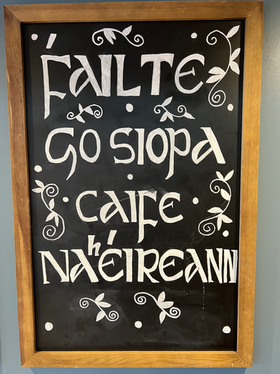 FÁILTE
GO SIOPA
CAIFE
NA hÉIREANN